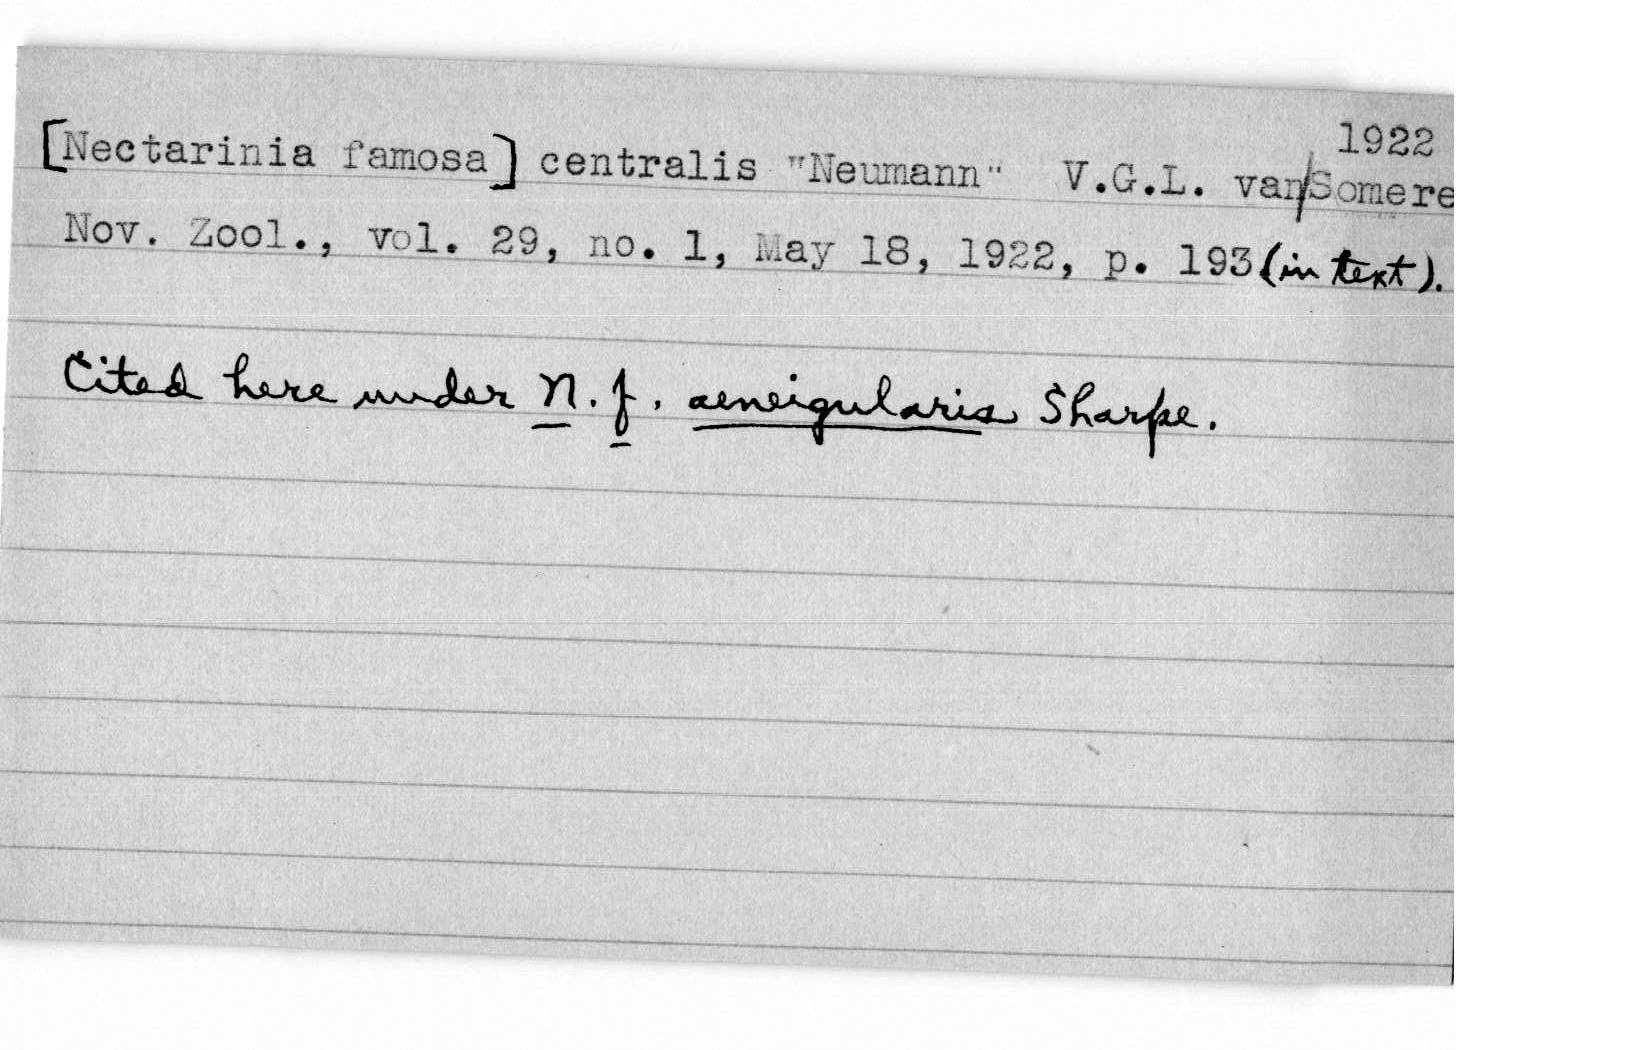 1922
[Nectarinia famosa] centralis "Neumann" V.G.L. van/Somere
Nov. Zool., vol. 29, no. 1, May 18, 1922, p. 193 (in text).
Cited here under N. f. aeneigularis Sharpe.